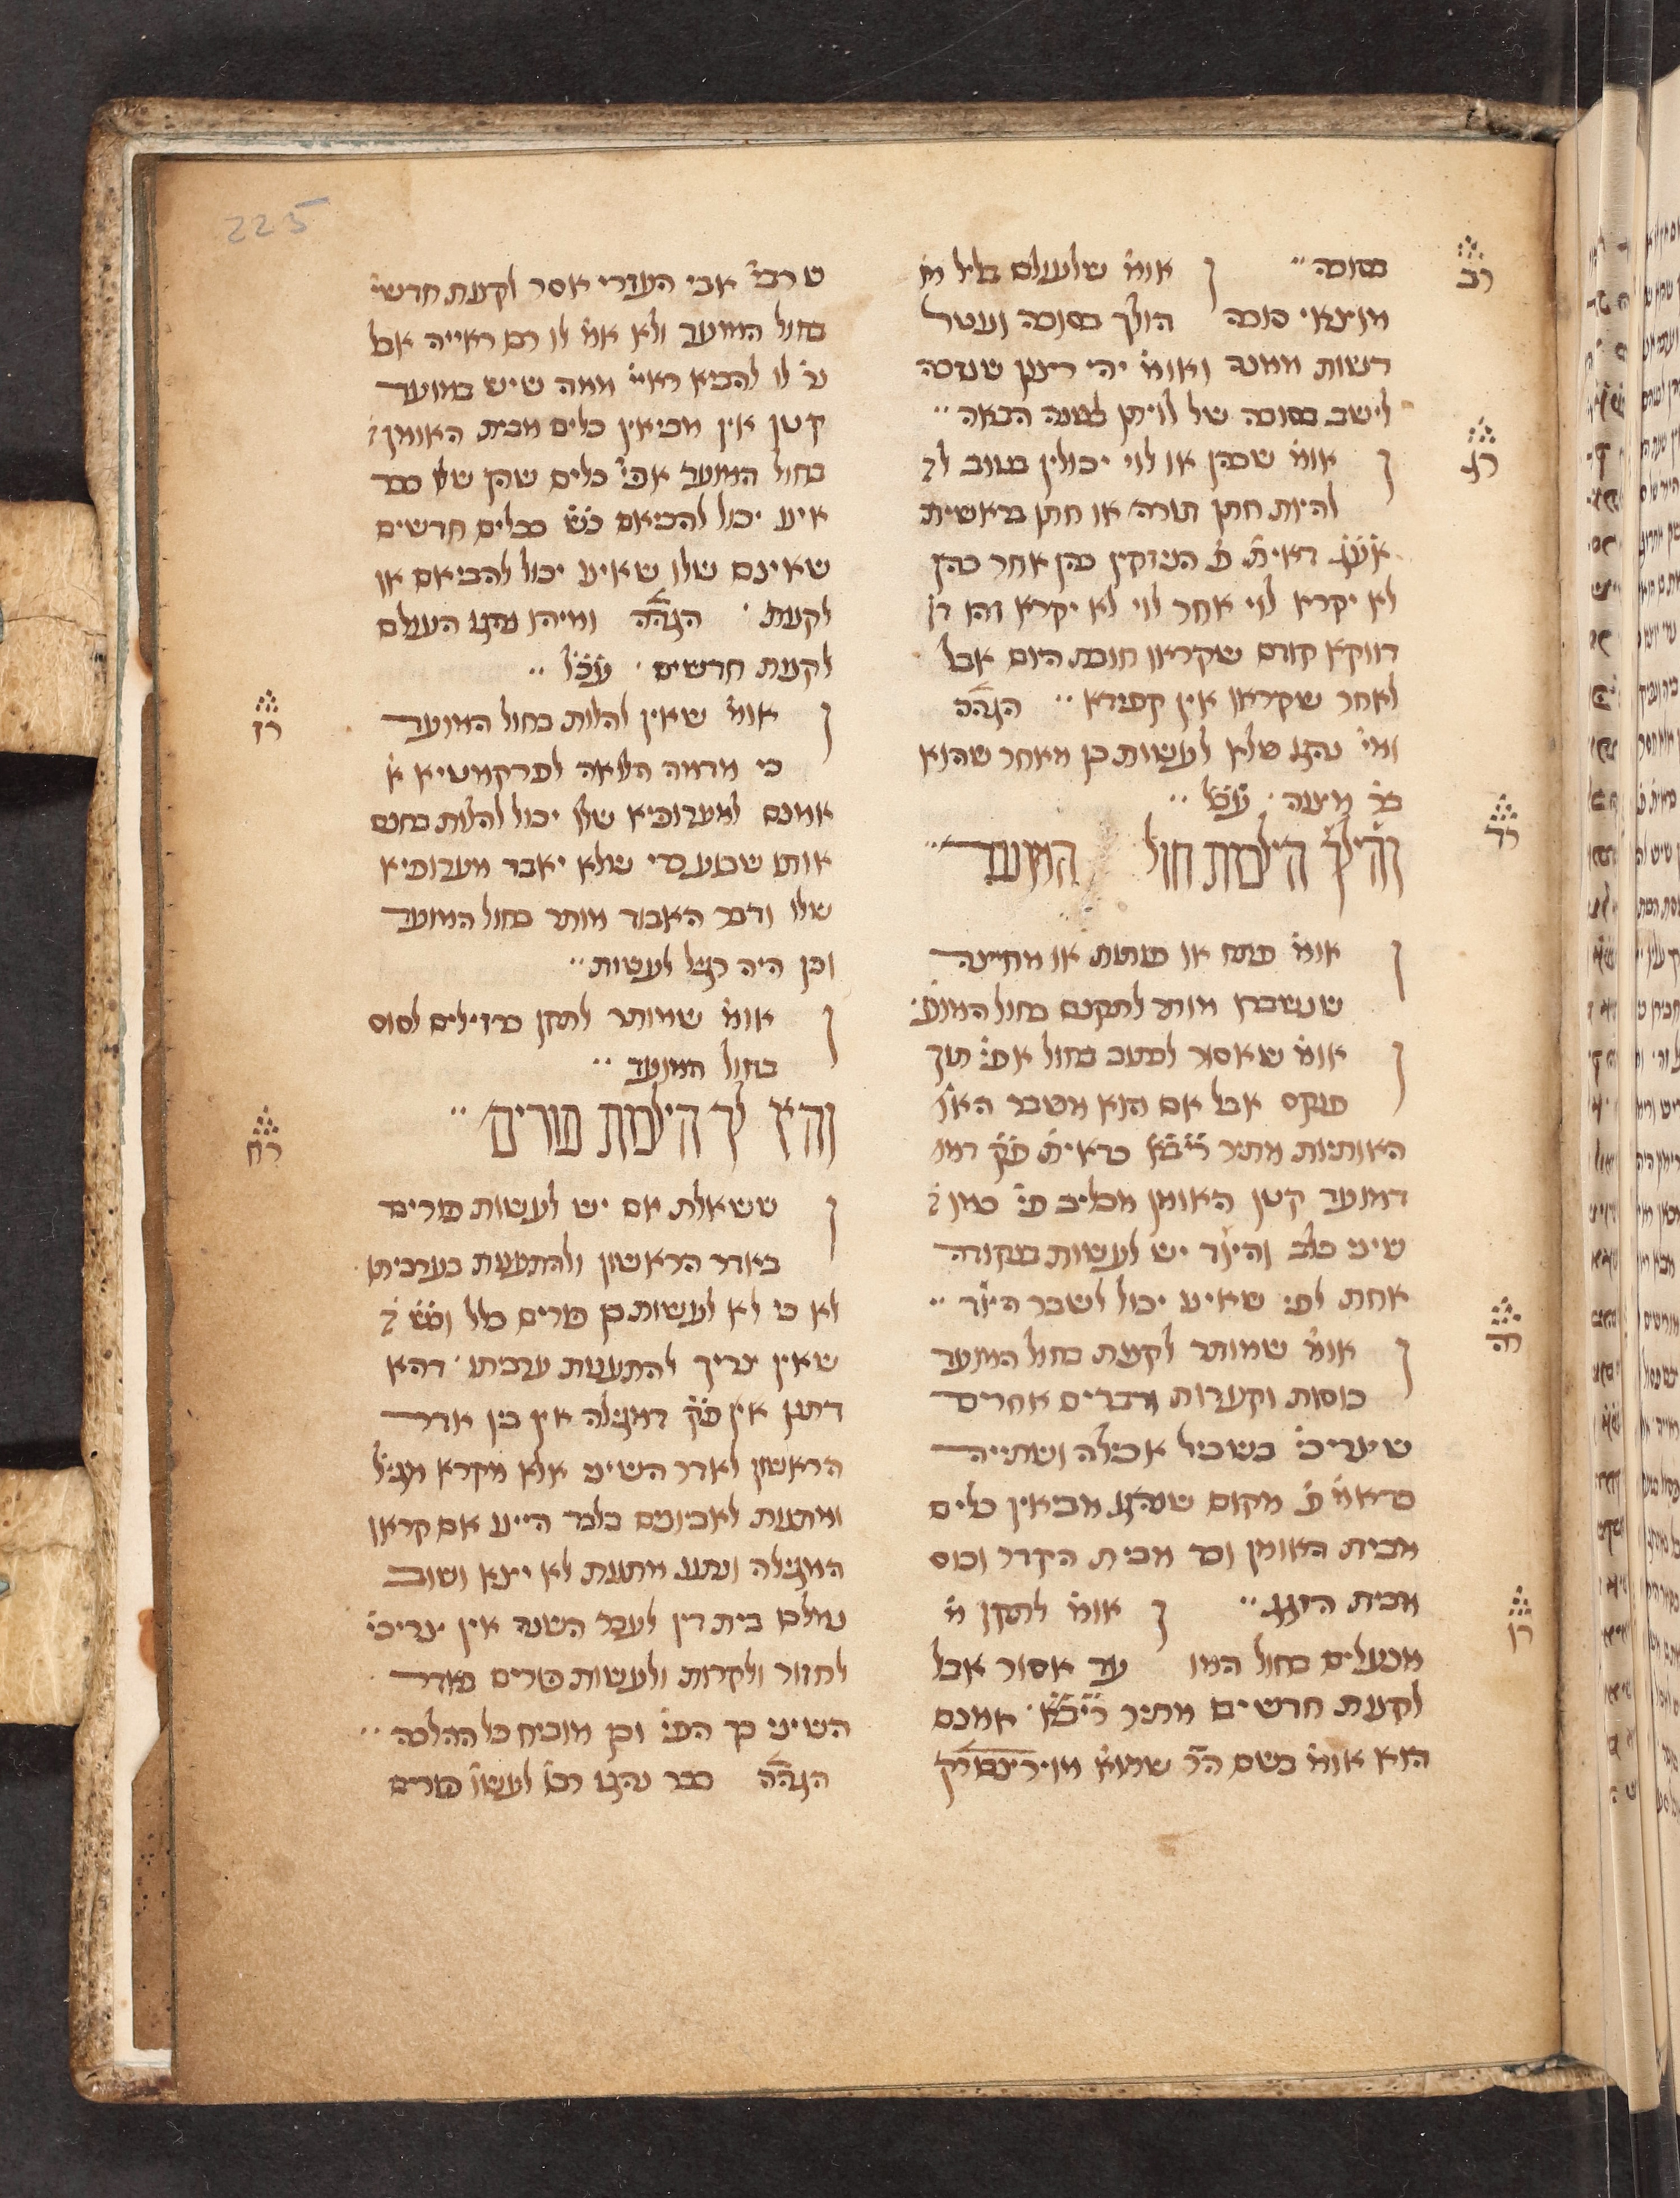 225
רב
בסוכה ״ ו אומ׳ שלעולם בליל מ׳
מוצאי סוכה הולך בסוכה ונוטל
רשות ממנה ואומ׳ יהי רצון שנזכה
לישב בסוכה של לויתן לשנה הבאה ״
רג
ו אומ׳ שכהן או לוי יכולין
להיות חתן תורה או חתן בראשית
דאית׳ פ׳ הניזקין כהן אחר כהן
לא יקרא לוי אחר לוי לא יקרא
דווקא קודם שקראו חובת היום אבל
לאחר שקראו אין קפידא ״ הגהה
ומי׳ נהגו שלא לעשות כן מאחר שהוא
מצוה ׳ עכ״ל ״
רד
והילך הילכות חול המועד ״
ו אומ׳ פותח או פותחת או מחיצה
שנשברו מותר לתקנם בחול המוע׳
ו אומ׳ שאסור לכתוב בחול אפי׳ תוך
פנקס אבל אם הוא משבר
האותיות מתיר ריב״א כדאית׳ פ״ק דמו׳
דמועד קטן האומן מכליב פי׳
שיני כלב והיוצר יש לעשות בנקודה
אחת לפי שאינו יכול לשבר היוצר ״
רה
ו אומ׳ שמותר לקנות בחול המועד
כוסות וקערות ודברים אחרים
שיצריכ׳ בשביל אכילה ושתייה
כדאמ׳ פ׳ מקום שנהגו מביאין כלים
מבית האומן וכד מבית הקדר וכוס
רו
מבית הזגג ״ ו אומ׳ לתקן מ׳
מנעלים בחול המו עד אסור אבל
לקנות חדשים מתיר ריב״א ׳ אמנם
הוא אומ׳ בשם הר׳
ט רבי׳ אבי העזרי אסר לקנות חדשי׳
בחול המועד ולא אמ׳ לו רבו ראייה אבל
נ׳ לו להביא ראיי׳ ממה שיש במועד
קטן אין מביאין כלים מבית האומן
בחול המועד אפי׳ כלים שהן שלו כבר
אינו יכול להביאם כ״ש בכלים חדשים
שאינם שלו שאינו יכול להביאם או
לקנות ׳ הגהה ומיהו נהגו העולם
לקנות חדשים ׳ עכ״ל ״
רז
ו אומ׳ שאין להלות בחול המועד
כי מדמה הלואה לפרקמטיא א׳
אמנם למערופיא שלו יכול להלות בחנם
אותו שבוע כדי שלא יאבד מערופיא
שלו ודבר האבוד מותר בחול המועד
וכן היה רגיל לעשות ״
ו אומ׳ שמותר לתקן ברזילים לסוס
בחול המועד ״
רח
והא לך הילכות פורים ״
ו ששאלת אם יש לעשות פורים
באדר הראשון ולהתענות בערבית
לא כי לא לעשות כן פורים כלל וכ״ש
שאין צריך להתענות ערביתו ׳ דהא
דתנן אין פ״ק דמגילה אין בין אדר
הראשון לאדר השיני אלא מקרא מגיל׳
ומתנות לאביונים בלבד היינו אם קראו
המגילה ונתנו מתנות לא יצא ושוב
נמלכו בית דין לעבר השנה אין צריכי׳
לחזור ולקרות ולעשות פורים באדר
השיני כך הפי׳ וכן מוכיח כל ההלכה ״
הגהה כבר נהגו רבו׳ לעשו׳ פורים